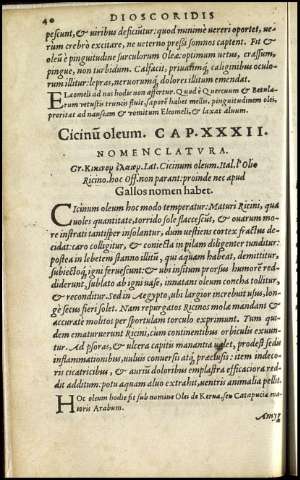 40 DIOSCORIDIS
pescunt, & uiribus deficiütur: quod minimè uereri oportet, ue-
rum crebrò excitare, ne ueterno pressi somnos captent. Fit &
oleũ è pinguitudine surculorum Oleæ: optimum uetus, crassum,
pingue, non turbidum. Calfacit, priuatimq́; caliginibus oculo-
rum illitur: lepras, neruorumq́; dolores illitum emendat.
ELæomeli ad nos hodie non affertur. Quod è Quercuum & Betula-
rum vetustis truncis fluit, saporē habet mellis, pinguitudinem olei,
proritat ad nauseam & vomitum Elæomeli, & laxat aluum.
Cicinũ oleum. CAP. XXXII.
NOMENCLATVRA.
Gr. Κίκινον ἔλαιον. Lat. Cicinum oleum. Ital. l'Olio
Ricino. hoc Off. non parant: proinde nec apud
Gallos nomen habet.
CIcinum oleum hoc modo temperatur: Maturi Ricini, qua
uoles quantitate, torrido sole flaccescũt, & ouarum mo-
re instrati tantisper insolantur, dum uestiens cortex fractus de-
cidat: caro colligitur, & coniecta in pilam diligenter tunditur:
postea in lebetem stanno illiti, qui aquam habeat, demittitur,
subiectoq́; igni feruescunt: & ubi insitum prorsus humorē red-
diderunt, sublato ab igni uase, innatans oleum concha tollitur,
& reconditur. Sed in Aegypto, ubi largior increbuit usus, lon-
gè secus fieri solet. Nam repurgatos Ricinos mola mandant &
accuratè molitos per sportulam torculo exprimunt. Tum qui-
dem ematuruerunt Ricini, cum continentibus orbiculis exuun-
tur. Ad psoras, & ulcera capitis manantia ualet, prodest sedis
inflammationibus, uuluis conuersis atq́; præclusis: item indeco-
ris cicatricibus, & auriũ doloribus emplastra efficaciora red-
dit additum. potu aquam aluo extrahit, uentris animalia pellit.
HOc oleum hodie fit sub nomine Olei de Kerua, seu Catapucia ma-
ioris Arabum.
Amyg